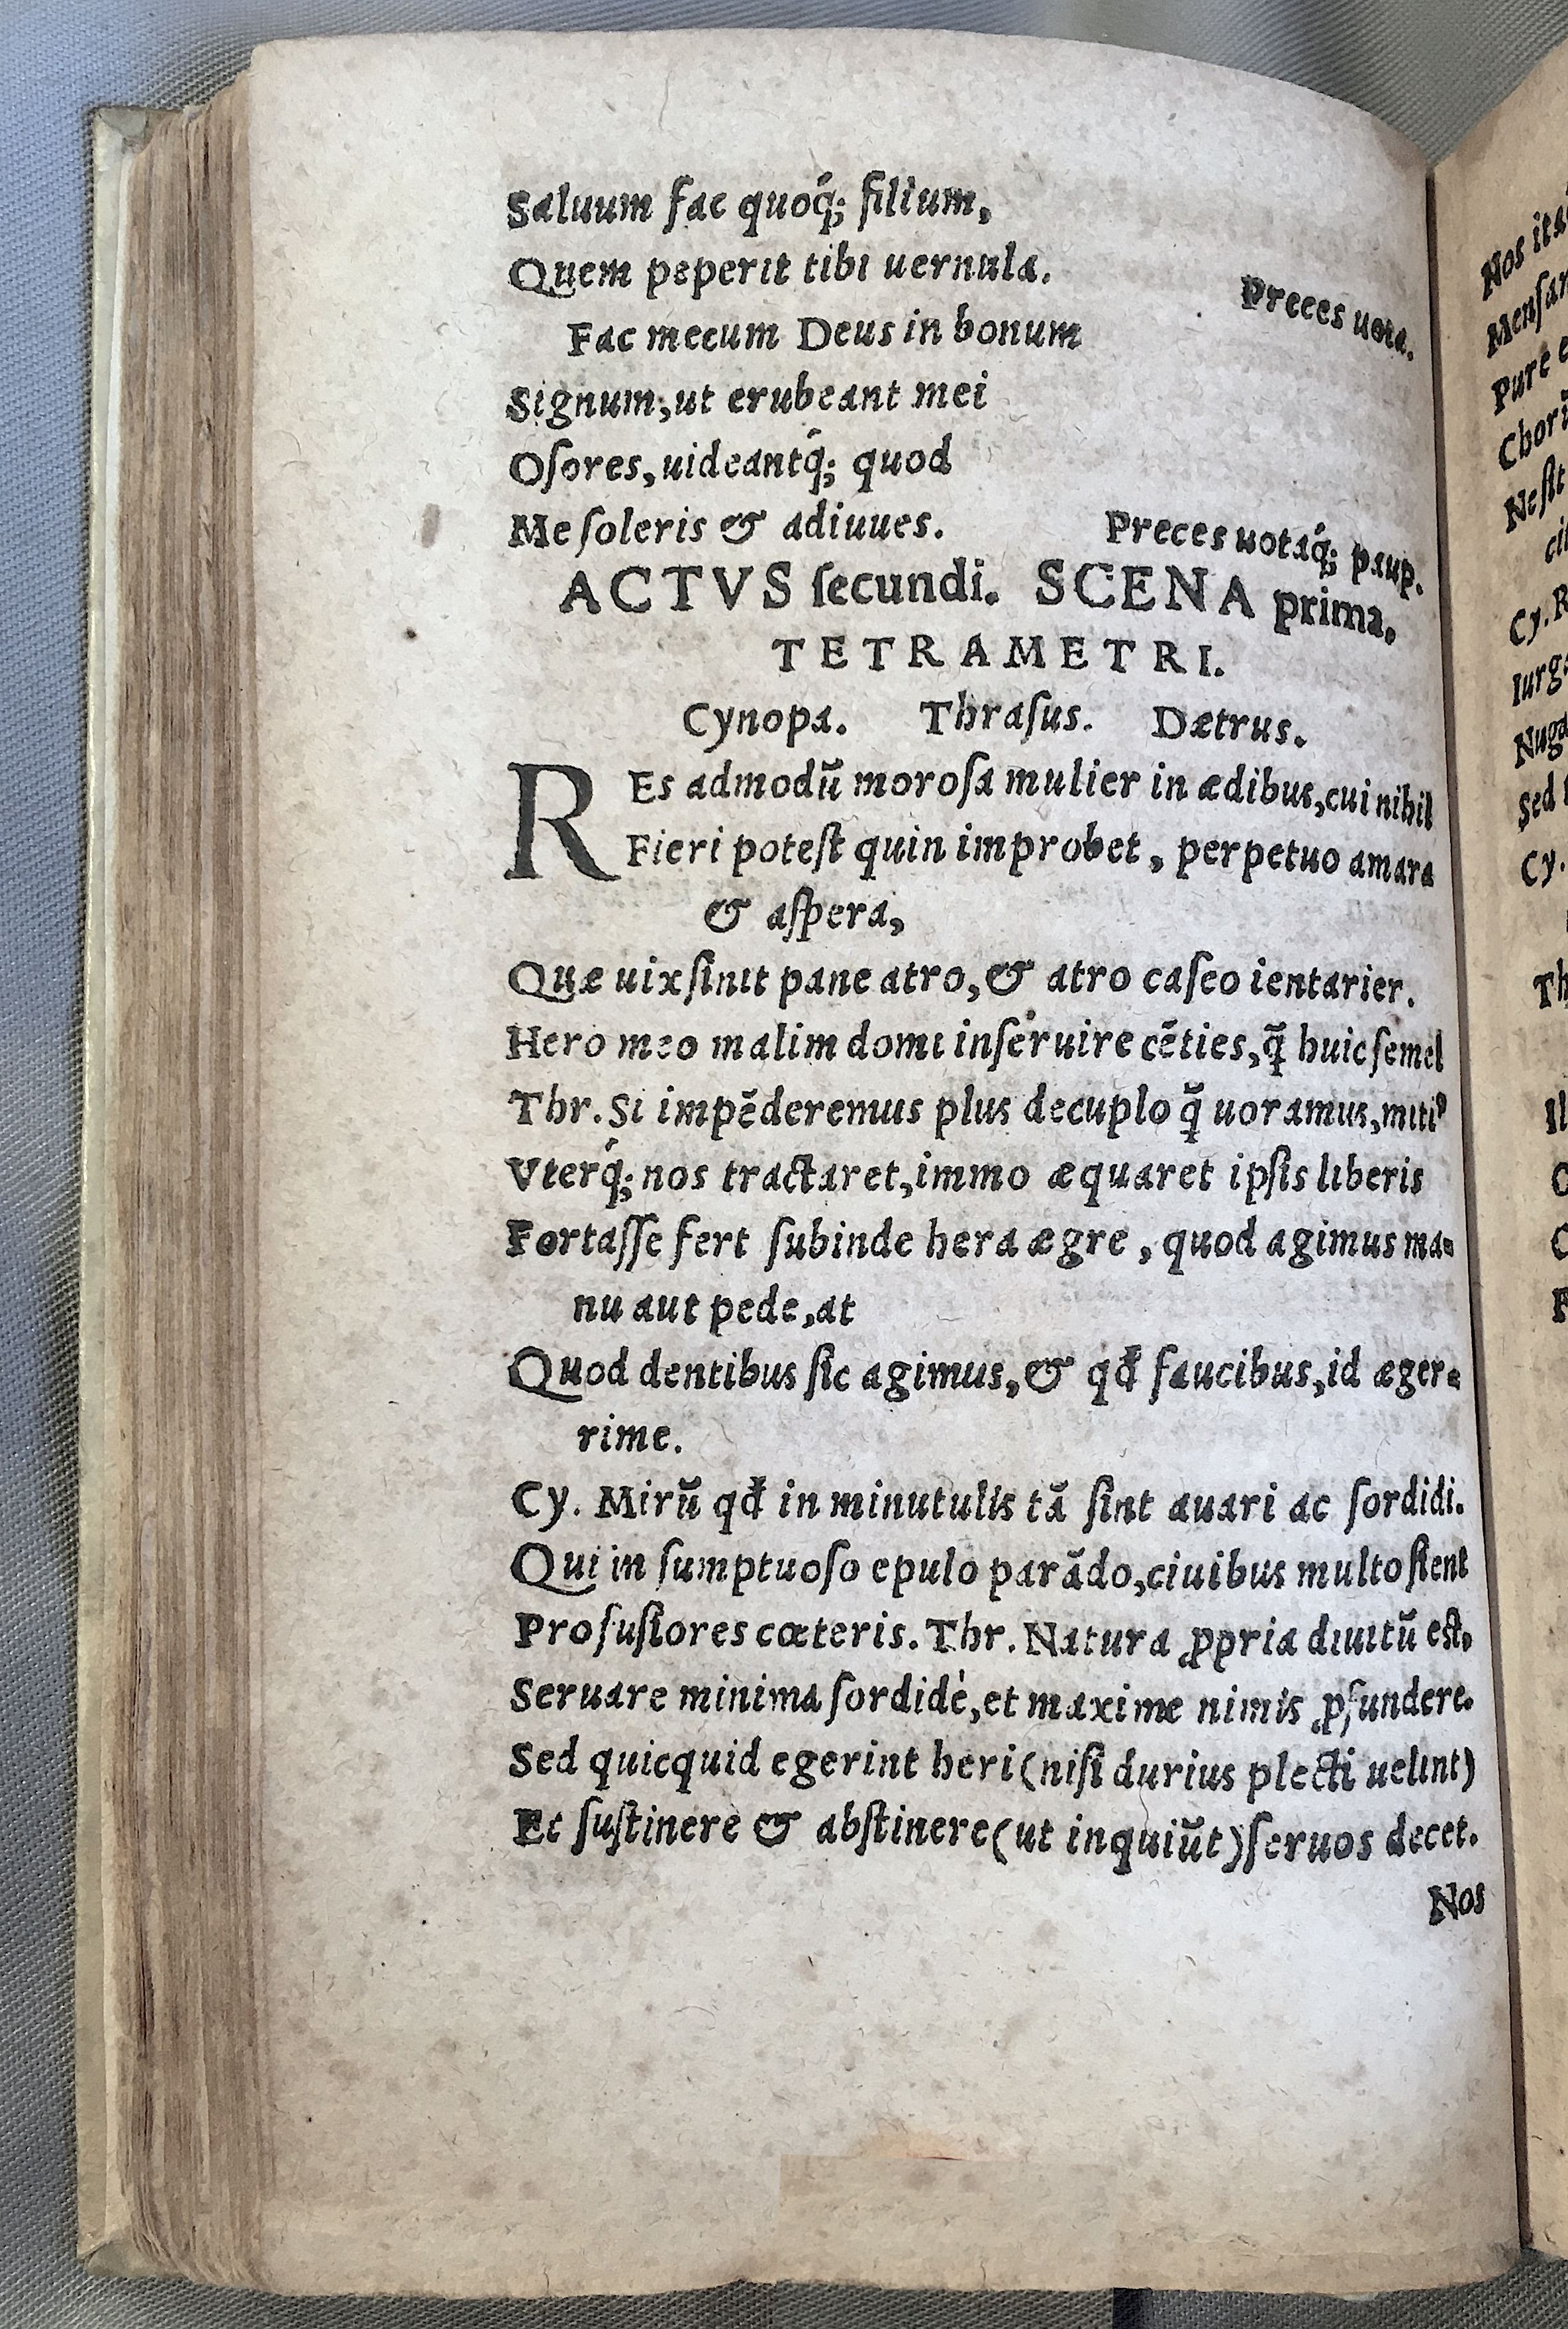 Saluum fac quoq́; filium,
Quem peperit tibi uernula.
Preces uota.
Fac mecum Deus in bonum
Signum, ut erubeant mei
Oſores, uideantq́; quod
Me ſoleris & adiuues.
Preces uotaq́; paup.
ACTVS ſecundi. SCENA prima.
TETRAMETRI.
Cynopa. Thraſus. Dætrus.
REs admodũ moroſa mulier in ædibus, cui nihil
Fieri poteſt quin improbet, perpetuo amara
& aſpera,
Quæ uix ſinit pane atro, & atro caſeo ientarier.
Hero meo malim domi inſeruire cẽties, q̃ huic ſemel
Thr. Si impẽderemus plus decuplo q̃ uoramus, mitiꝰ
Vterq́; nos tractaret, immo æquaret ipſis liberis
Fortaſſe fert ſubinde hera ægre, quod agimus ma-
nu aut pede, at
Quod dentibus ſic agimus, & qđ faucibus, id æger-
rime.
Cy. Mirũ qđ in minutulis tã ſint auari ac ſordidi.
Qui in ſumptuoſo epulo parãdo, ciuibus multo ſient
Profuſiores cœteris. Thr. Natura ꝓpria diuitũ est,
Seruare minima ſordidè, et maxime nimis ꝓfundere.
Sed quicquid egerint heri (niſi durius plecti uelint)
Et ſuſtinere & abſtinere (ut inquiũt) ſeruos decet.
Nos
Nos
Menſar
Pure
Neſit
Cy.
Sed
Cy.
Th